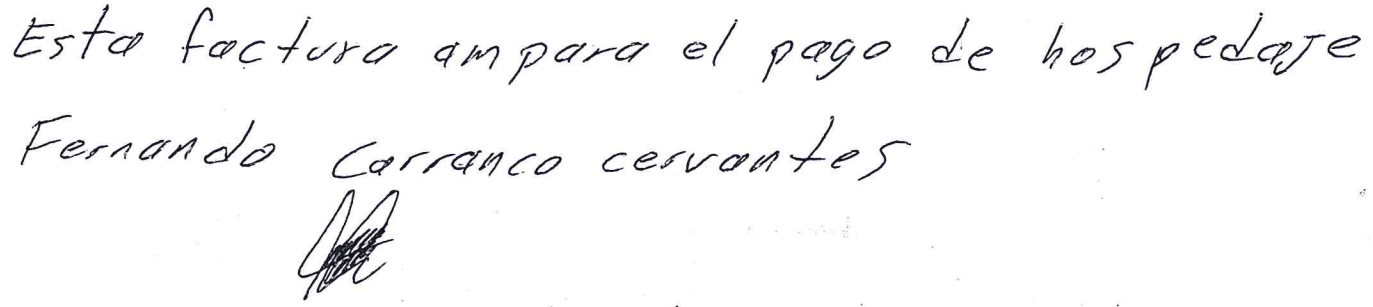 Esta factura ampara el pago de hospedaje
Fernando Carranco cervantes